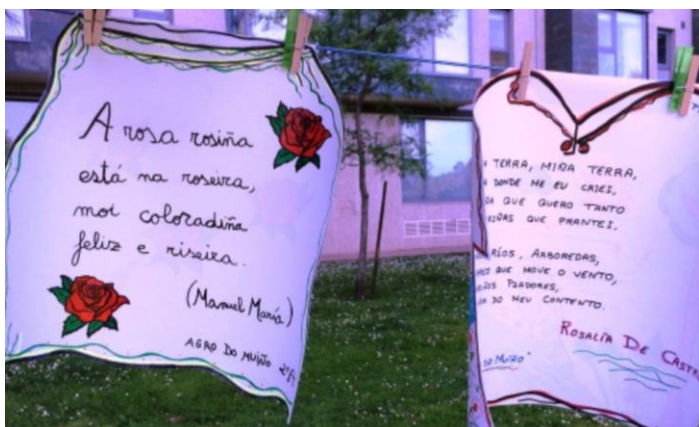 A rosa rosiña
está na roseira,
moi coloradiña
feliz e riseira.
(Manuel María)
AGRO DO MUIÑO
TERRA, MIÑA TERRA,
DONDE ME EU CRIEI,
QUE QUERO TANTO
QUE PRANTEI.
RÍOS, ARBOREDAS,
QUE MOVE O VENTO,
PIADORES,
DO MEU CONTENTO.
ROSALÍA DE CASTR